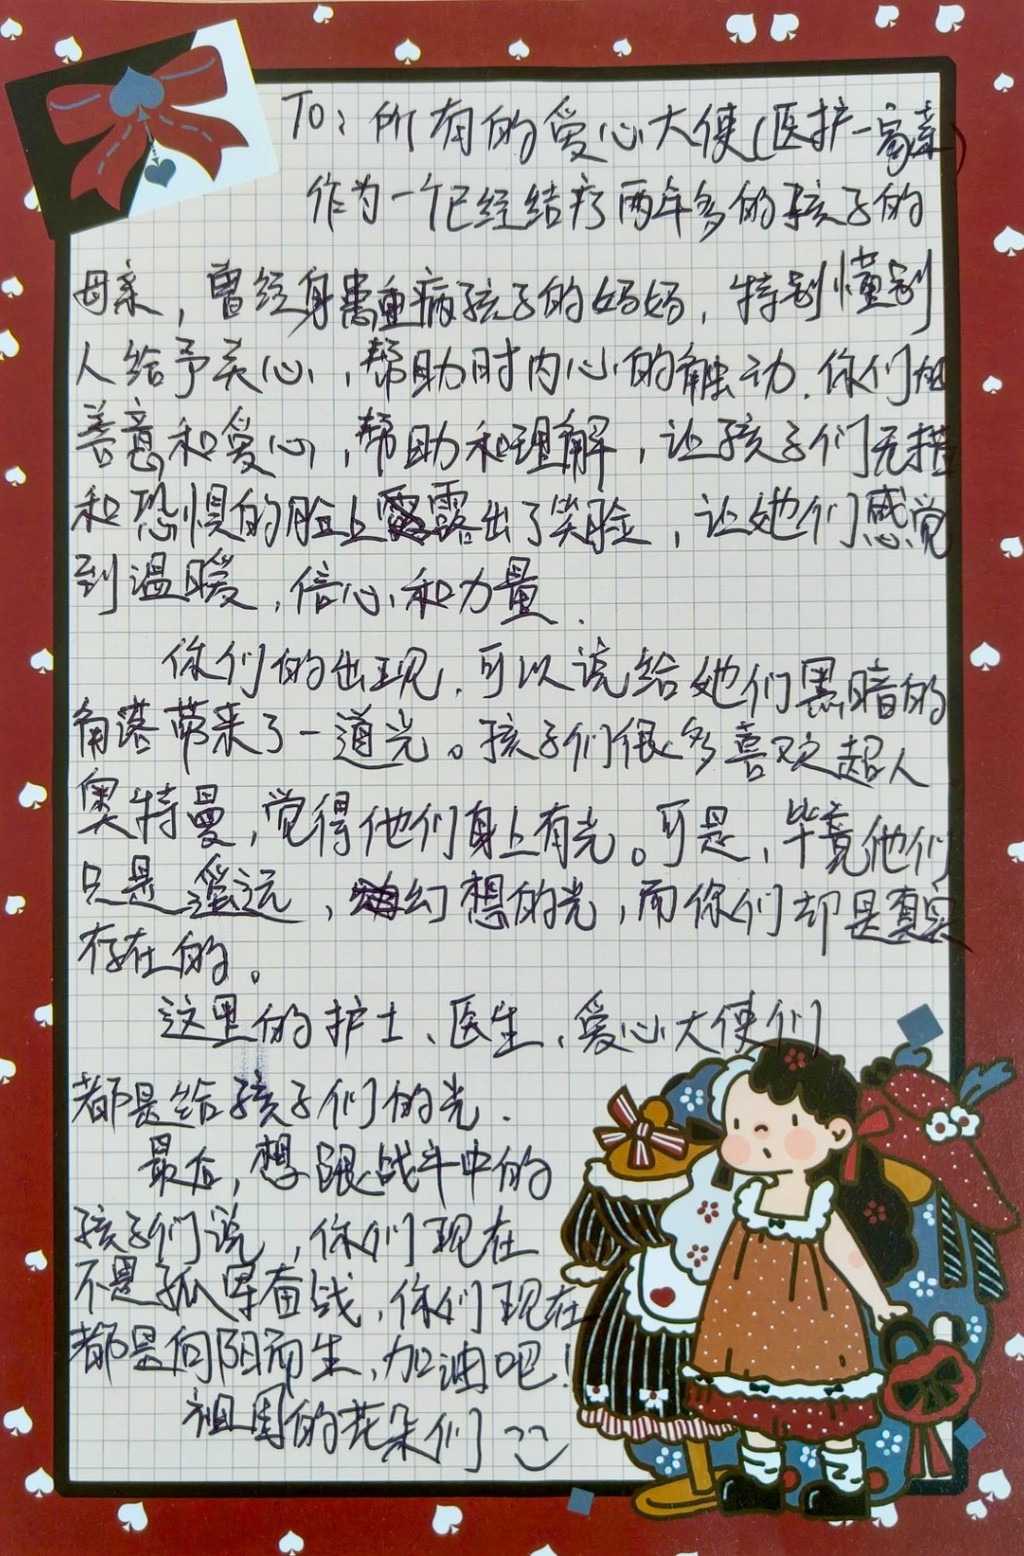 To：所有的爱心大使（医护一家亲）
作为一个已经结疗两年多的孩子的
母亲，曾经身患重病孩子的妈妈，特别懂别
人给予关心，帮助时内心的触动．你们的
善意和爱心，帮助和理解，让孩子们无措
和恐惧的脸上露出了笑脸，让她们感觉
到温暖，信心和力量．
你们的出现，可以说给她们黑暗的
角落带来了一道光。孩子们很多喜欢超人
奥特曼，觉得他们身上有光。可是，毕竟他们
只是遥远，幻想的光，而你们却是真实
存在的。
这里的护士、医生、爱心大使们
都是给孩子们的光．
最后，想跟战斗中的
孩子们说，你们现在
不是孤军奋战，你们现在
都是向阳而生，加油吧！
祖国的花朵们